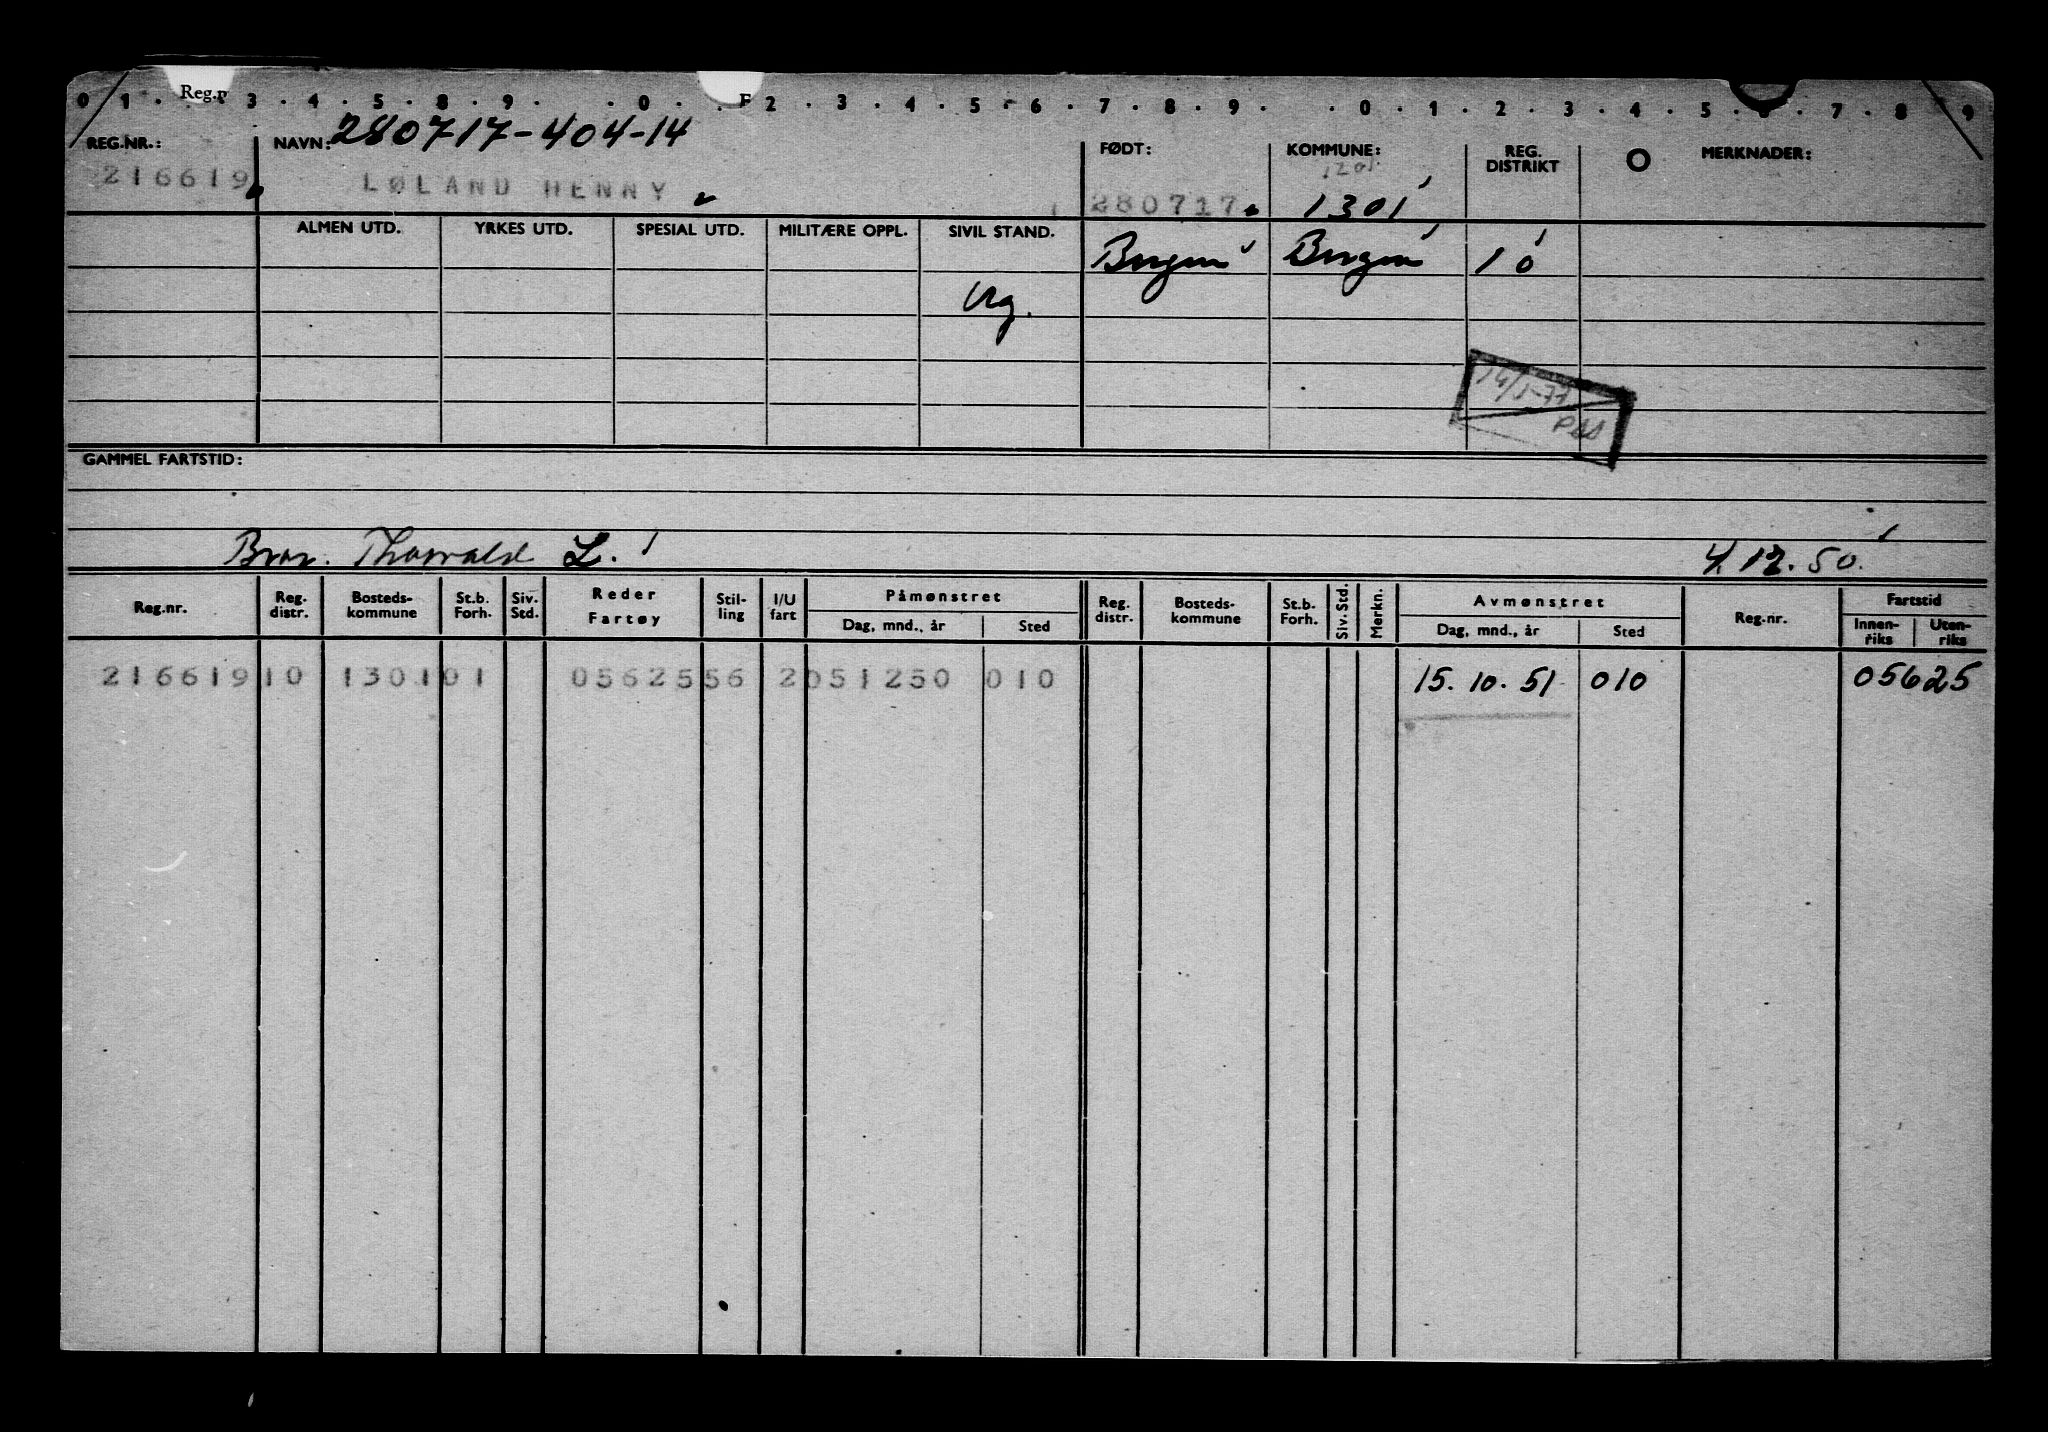 0 1 . Reg.n 3 . 4 . 5 . 8 . 9 . . 0 . . F 2 . 3 . 4 . 5 . 6 . 7 . 8 . 9 . . 0 . 1 . 2 . 3 . 4 . 5 . 6 . 7 . 8 . 9
REG.NR.: NAVN: 280717-404-14 FØDT: KOMMUNE: REG. DISTRIKT O MERKNADER:
1201
216619 LØLAND HENNY 280717 1301
ALMEN UTD. YRKES UTD. SPESIAL UTD. MILITÆRE OPPL. SIVIL STAND. Bergen Bergen 10
Ug.
14/1-77
GAMMEL FARTSTID:
Bror. Thorvald L. 4.12.50
Reg.nr. Reg. distr. Bosteds-kommune St.b. Forh. Siv. Std. Reder Fartøy Stil-ling I/U fart Påmønstret Dag, mnd., år Sted Reg. distr. Bosteds-kommune St.b. Forh. Siv. Std. Merkn. Avmønstret Dag, mnd., år Sted Reg.nr. Fartstid Innen-riks Uten-riks
216619 10 1301 01 05625 56 2 051250 010 15.10.51 010 05625